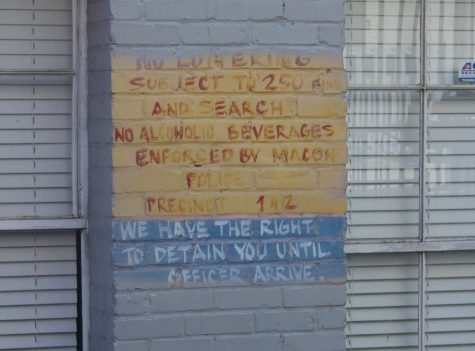 NO LOITERING
SUBJECT TO 250 FINE
AND SEARCH
NO ALCOHOLIC BEVERAGES
ENFORCED BY MACON
POLICE
PRECINCT 1 & 2
WE HAVE THE RIGHT
TO DETAIN YOU UNTIL
OFFICER ARRIVE.